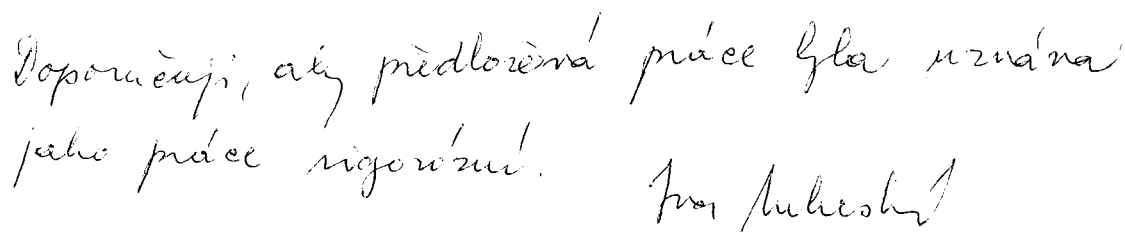 Doporučuji, aby předložená práce byla uznána
jako práce rigorózní.
Ivan